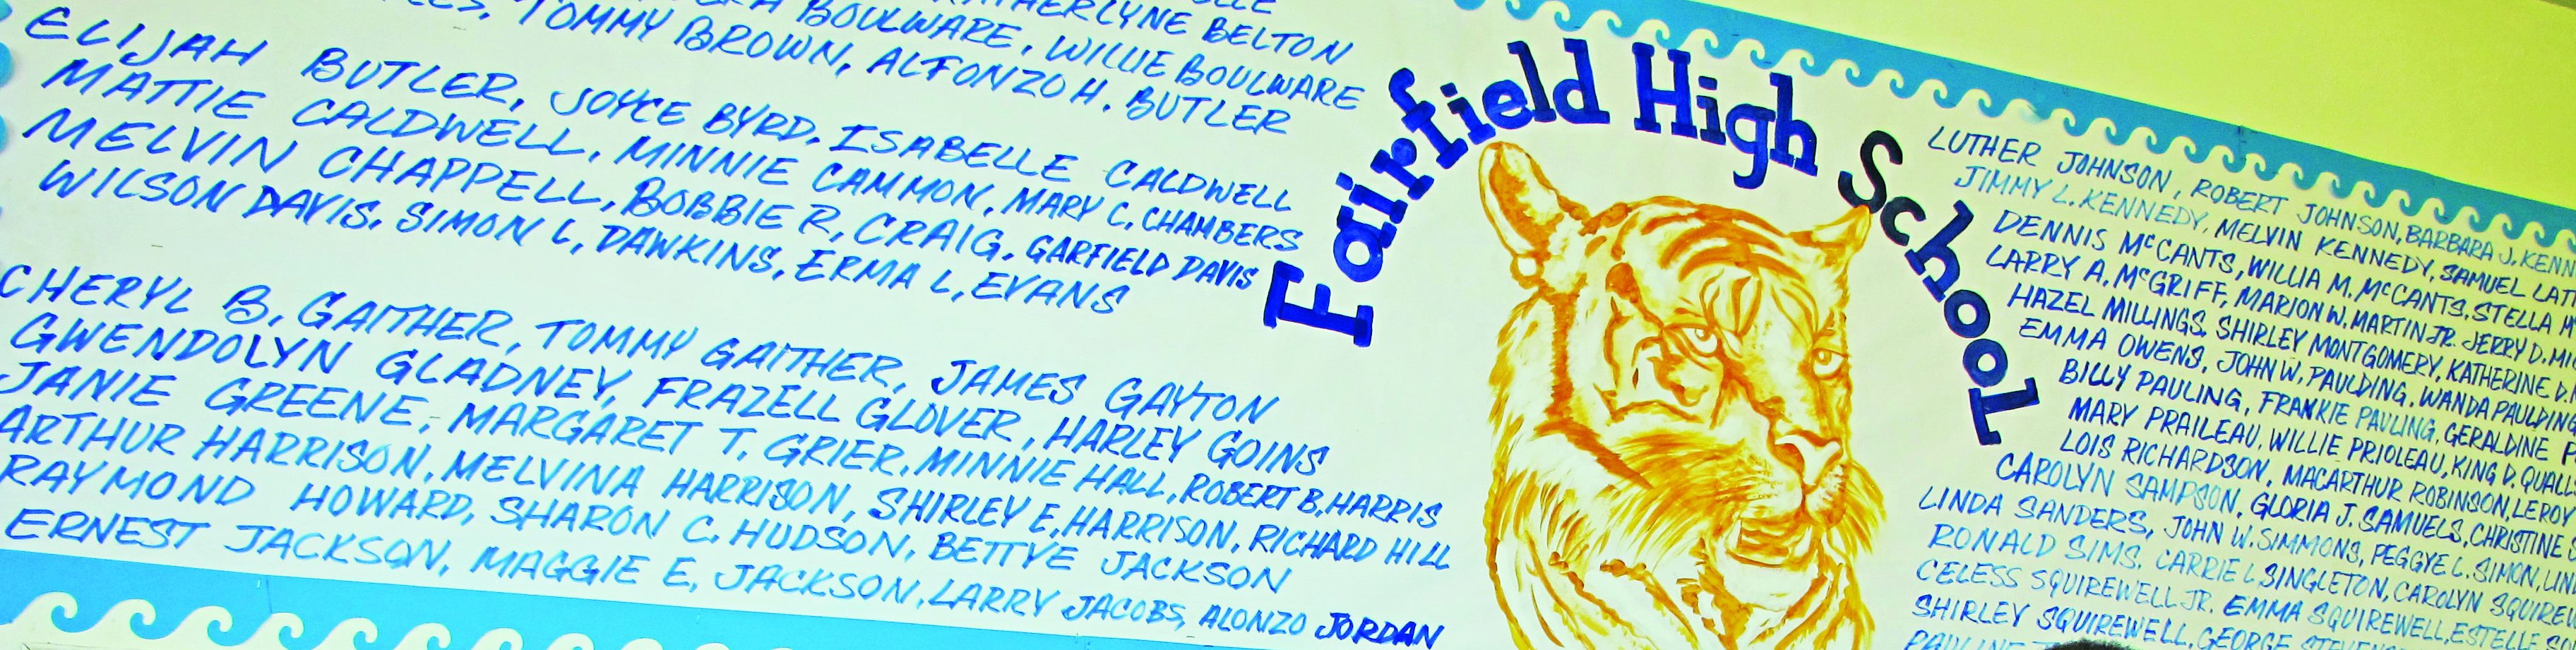 BELTON
BOULWARE, WILLIE BOULWARE
TOMMY BROWN, ALFONZO H. BUTLER
ELIJAH BUTLER, JOYCE BYRD, ISABELLE CALDWELL
MATTIE CALDWELL, MINNIE CAMMON, MARY C. CHAMBERS
MELVIN CHAPPELL, BOBBIE R, CRAIG, GARFIELD DAVIS
WILSON DAVIS, SIMON L, DAWKINS, ERMA L, EVANS
CHERYL B, GAITHER, TOMMY GAITHER, JAMES GAYTON
GWENDOLYN GLADNEY, FRAZELL GLOVER, HARLEY GOINS
JANIE GREENE, MARGARET T, GRIER, MINNIE HALL, ROBERT B, HARRIS
ARTHUR HARRISON, MELVINA HARRISON, SHIRLEY E, HARRISON, RICHARD HILL
RAYMOND HOWARD, SHARON C, HUDSON, BETTYE JACKSON
ERNEST JACKSON, MAGGIE E, JACKSON, LARRY JACOBS, ALONZO JORDAN
Fairfield High School
LUTHER JOHNSON, ROBERT JOHNSON, BARBARA J,
JIMMY L. KENNEDY, MELVIN KENNEDY, SAMUEL
DENNIS McCANTS, WILLIA M. McCANTS, STELLA
LARRY A, McGRIFF, MARION W. MARTIN JR. JERRY D.
HAZEL MILLINGS, SHIRLEY MONTGOMERY, KATHERINE D.
EMMA OWENS, JOHN W, PAULDING, WANDA PAULDING
BILLY PAULING, FRANKIE PAULING, GERALDINE
MARY PRAILEAU, WILLIE PRIOLEAU, KING D. QUALLS
LOIS RICHARDSON, MACARTHUR ROBINSON, LEROY
CAROLYN SAMPSON, GLORIA J. SAMUELS, CHRISTINE
LINDA SANDERS, JOHN W. SIMMONS, PEGGYE L, SIMON,
RONALD SIMS, CARRIE L, SINGLETON, CAROLYN
CELESS SQUIREWELL JR. EMMA SQUIREWELL, ESTELLE
SHIRLEY SQUIREWELL, GEORGE
PAULINE